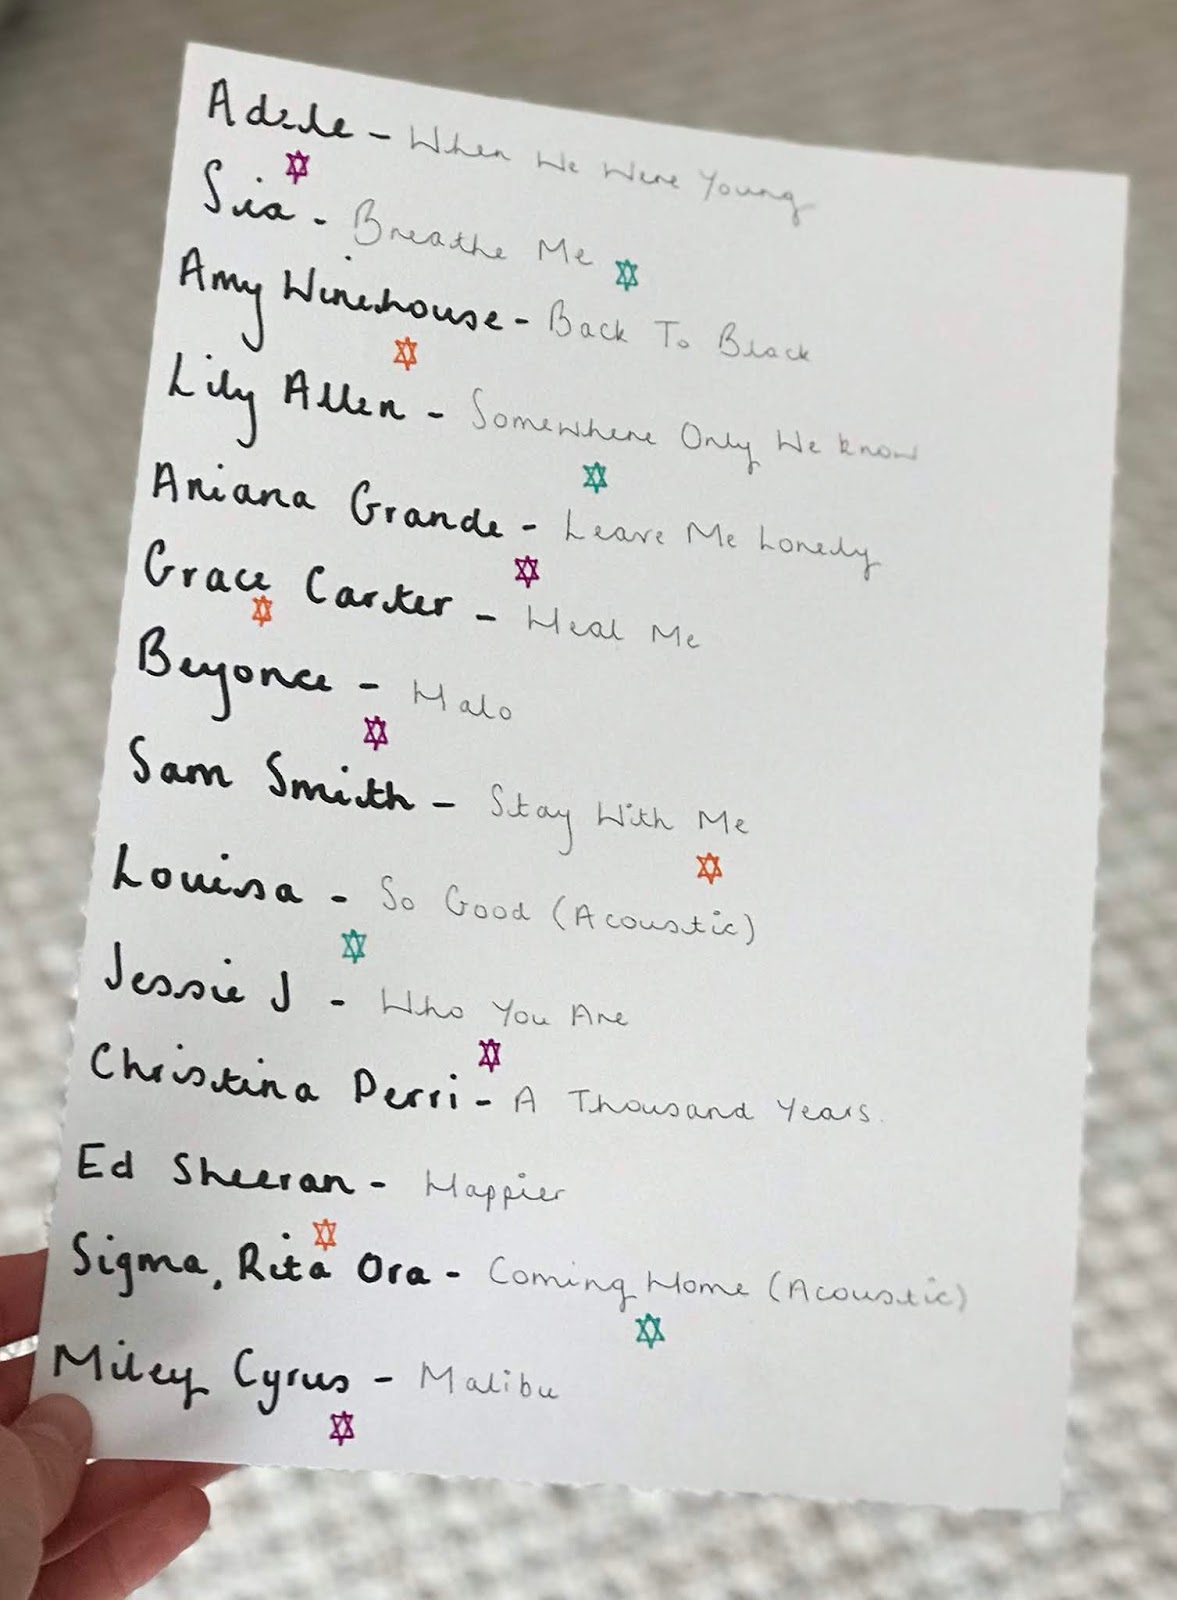 Adele - When We Were Young
Sia - Breathe Me
Amy Winehouse - Back To Black
Lily Allen - Somewhere Only We know
Ariana Grande - Leave Me Lonely
Grace Carter - Heal Me
Beyonce - Halo
Sam Smith - Stay With Me
Louisa - So Good (Acoustic)
Jessie J - Who You Are
Christina Perri - A Thousand Years.
Ed Sheeran - Happier
Sigma, Rita Ora - Coming Home (Acoustic)
Miley Cyrus - Malibu